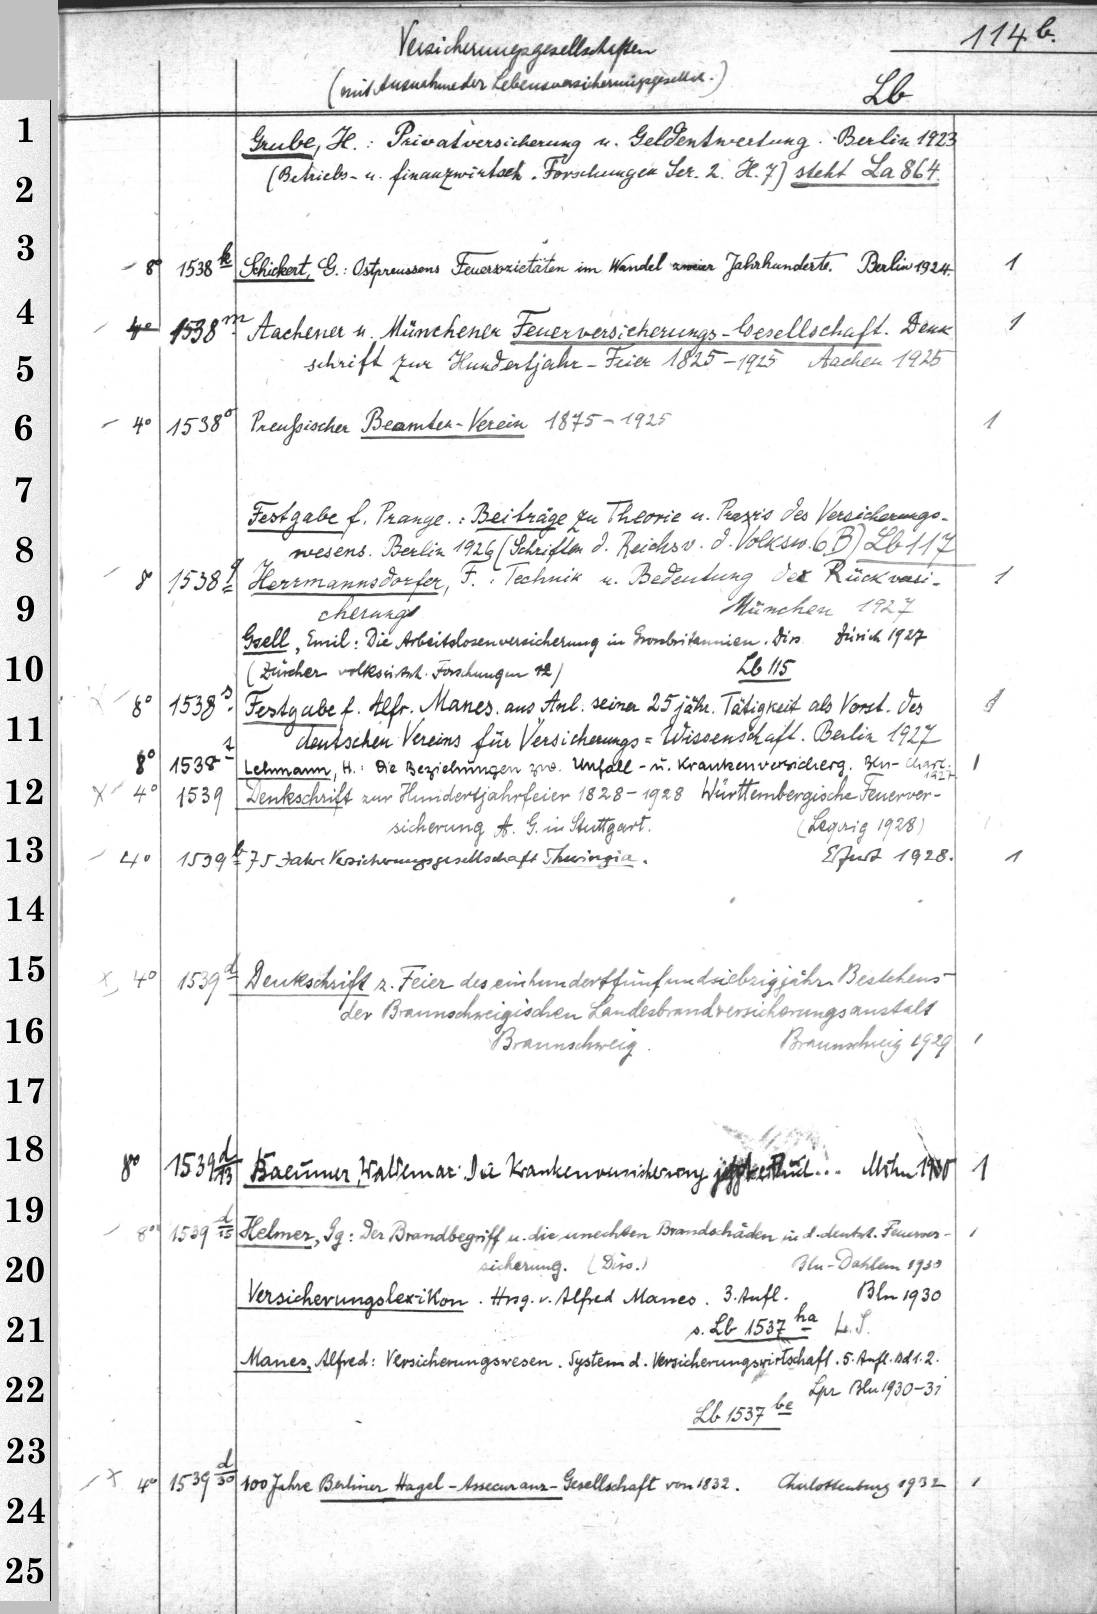 Versicherungsgesellschaften
114 b.
(mit Ausnahme der Lebensversicherungsgesellsch.)
Lb
1
Grube, H.: Privatversicherung u. Geldentwertung. Berlin 1923
2
(Betriebs- u. finanzwirtsch. Forschungen Ser. 2. H. 7) steht La 864.
3
8° 1538 k Schickert, G.: Ostpreussens Feuersozietäten im Wandel zweier Jahrhunderte. Berlin 1924. 1
4
4° 1538 m Aachener u. Münchener Feuerversicherungs-Gesellschaft. Denk 1
5
schrift zur Hundertjahr-Feier 1825-1925 Aachen 1925
6
4° 1538 o Preußischer Beamten-Verein 1875-1925 1
7
Festgabe f. Prange.: Beiträge zu Theorie u. Praxis des Versicherungs-
8
wesens. Berlin 1926 (Schriften d. Reichsv. d. Volksw. 6, B) Lb 117
8 1538 q Herrmannsdorfer, F.: Technik u. Bedeutung der Rückversi- 1
9
cherung München 1927
Gsell, Emil: Die Arbeitslosenversicherung in Grossbritannien. Diss Zürich 1927
10
(Zürcher volkswirtsch. Forschungen 12) Lb 115
8° 1538 s. Festgabe f. Alfr. Manes. aus Anl. seiner 25jähr. Tätigkeit als Vorst. des 1
11
deutschen Vereins für Versicherungs=Wissenschaft. Berlin 1927
8° 1538 Lehmann, H.: Die Beziehungen zw. Unfall- u. Krankenversicherg. Bln-Charl. 1927 1
12
4° 1539 Denkschrift zur Hundertjahrfeier 1828-1928 Württembergische Feuerver-
sicherung A. G. in Stuttgart. (Leipzig 1928)
13
4° 1539 b 75 Jahre Versicherungsgesellschaft Thuringia. Erfurt 1928. 1
14
15
4° 1539 d Denkschrift z. Feier des einhundertfünfundsiebzigjähr. Bestehens
der Braunschweigischen Landesbrandversicherungsanstalt
16
Braunschweig. Braunschweig 1929 1
17
18
8° 1539 d/13 Baeumer, Waldemar: Die Krankenversicherung 1930 1
19
8° 1539 d/15 Helmer, Gg: Der Brandbegriff u. die unechten Brandschäden in d. deutsch. Feuerver- 1
20
sicherung. (Diss.) Bln-Dahlem 1930
Versicherungslexikon. Hrsg. v. Alfred Manes. 3. Aufl. Bln 1930
21
s. Lb 1537 ha L. S.
Manes, Alfred: Versicherungswesen. System d. Versicherungswirtschaft. 5. Aufl. Bd 1. 2.
22
Lpz Bln 1930-31
Lb 1537 be
23
4° 1539 d/30 100 Jahre Berliner Hagel-Assecuranz-Gesellschaft von 1832. Charlottenburg 1932 1
24
25